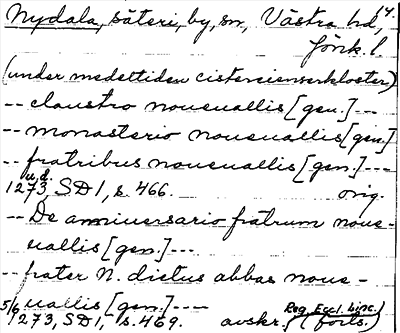 Nydala, säteri, by, sn, Västra hd, 4.
Jönk. l
(under medeltiden cistercienserkloster)
-- claustro noueuallis [gen.] ---
-- monasterio noueuallis [gen]
-- fratribus noueuallis [gen.] ---
u.d.
1273, SD 1, s. 466. orig.
-- De anniuersario fratrum noue-
uallis [gen.] ---
-- frater N. dictus abbas noue-
uallis [gen.] ----
5/6 1273, SD 1, s. 469. avskr. Reg. Eccl. Linc. (forts.)